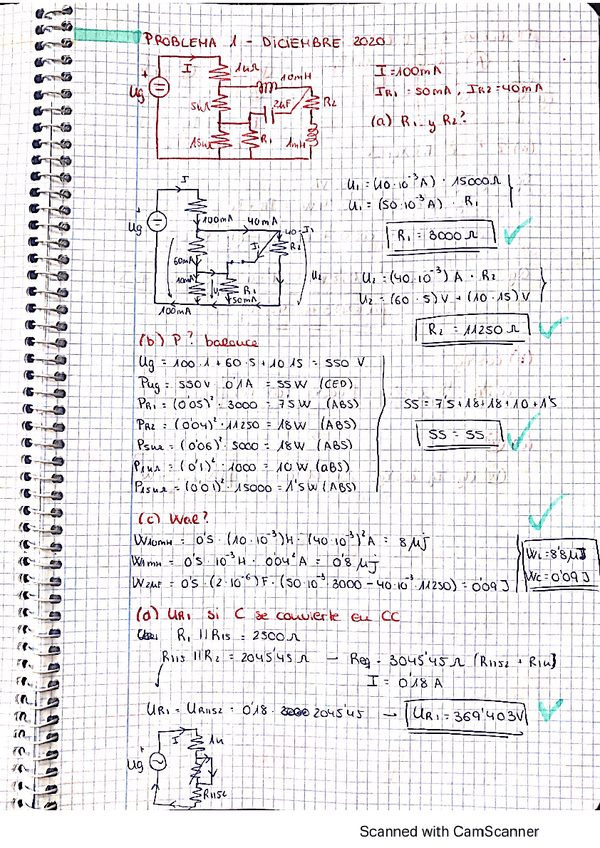 PROBLEMA 1 - DICIEMBRE 2020
I
1kΩ
10mH
Ug
5kΩ
2µF
R2
15kΩ
R1
1mH
I = 100mA
IR1 = 50mA, IR2 = 40mA
(a) R1 y R2?
I
Ug
100mA
40mA
40-I1
I1
R2
60mA
U2
10mA
U1
R1
50mA
100mA
U1 = (10·10⁻³A) · 15000Ω
U1 = (50·10⁻³A) · R1
R1 = 3000Ω
U2 = (40·10⁻³) A · R2
U2 = (60·5)V + (10·15)V
R2 = 11250Ω
(b) P? balance
Ug = 100·1 + 60·5 + 10·15 = 550 V
PUg = 550V · 0'1A = 55W (CED)
PR1 = (0'05)² · 3000 = 7'5W (ABS)
PR2 = (0'04)² · 11250 = 18W (ABS)
P5kΩ = (0'06)² · 5000 = 18W (ABS)
P1kΩ = (0'1)² · 1000 = 10W (ABS)
P15kΩ = (0'01)² · 15000 = 1'5W (ABS)
55 = 7'5+18+18+10+1'5
55 = 55
(c) Wal?
W10mH = 0'5 · (10·10⁻³)H · (40·10⁻³)²A = 8µJ
W1mH = 0'5 · 10⁻³H · 0'04²A = 0'8µJ
W2µF = 0'5 · (2·10⁻⁶)F · (50·10⁻³·3000 - 40·10⁻³·11250) = 0'09J
WL = 8'8µJ
WC = 0'09J
(d) UR1 si C se convierte en CC
R1 || R15 = 2500Ω
R115 || R2 = 2045'45Ω → Req = 3045'45Ω (R1152 + R1k)
I = 0'18A
UR1 = UR1152 = 0'18 · 2045'45 → UR1 = 369'403V
I
1k
Ug
R1152
Scanned with CamScanner